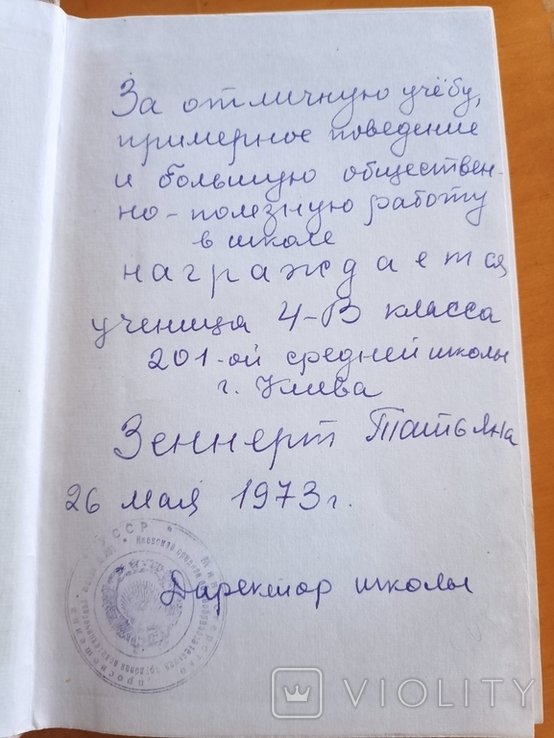 За отличную учёбу,
примерное поведение
и большую обществен-
но-полезную работу
в школе
награждается
ученица 4-В класса
201-ой средней школы
г. Киева
Зеннерт Татьяна
26 мая 1973 г.
Директор школы
УССР * Министерство просвещения
VIOLITY